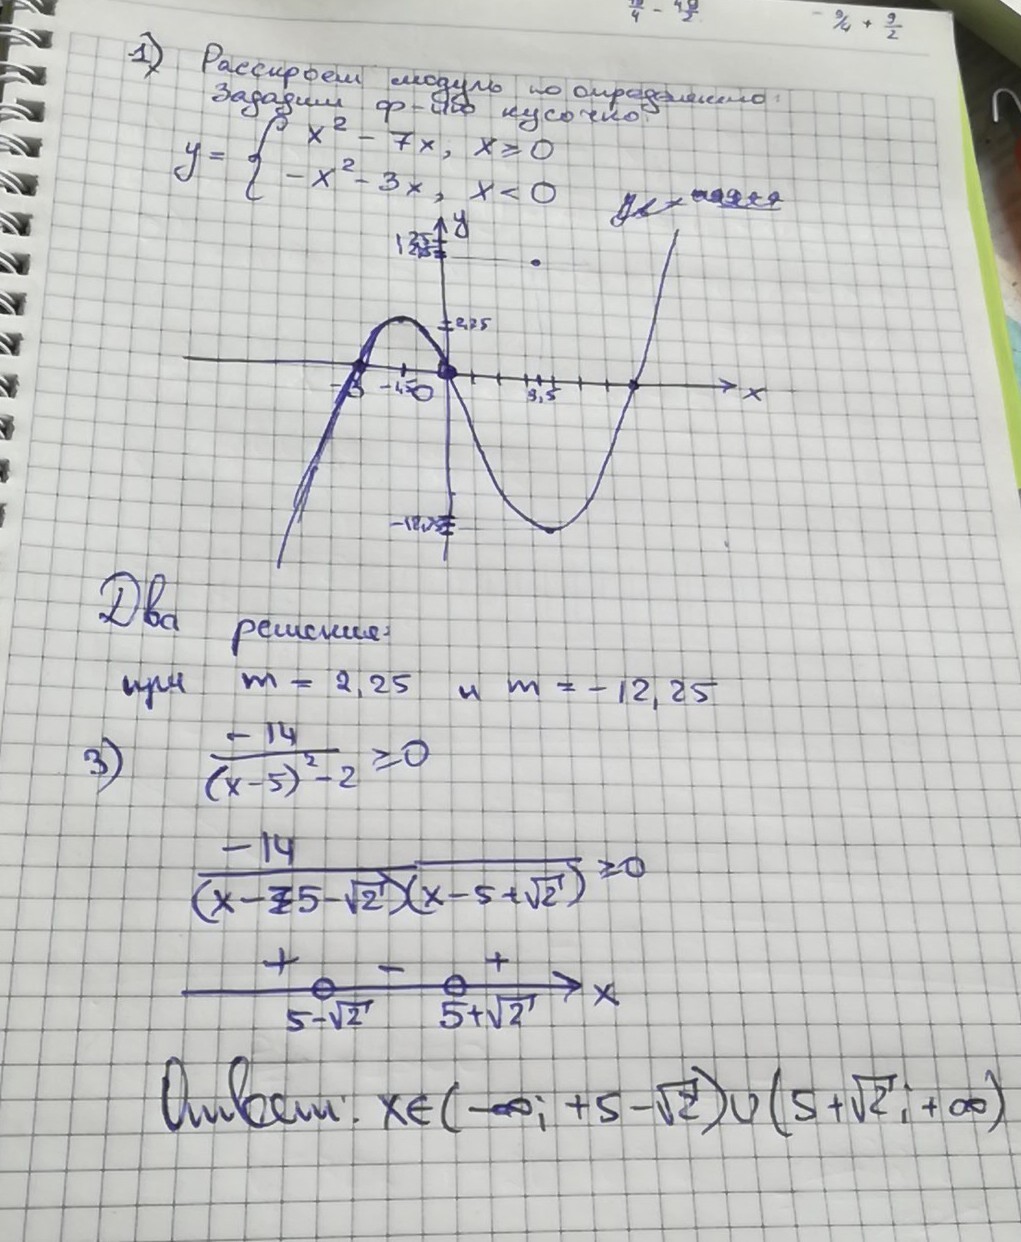 - 9/4 + 9/2
1) Раскроем модуль по определению.
Зададим ф-ию кусочно:
y = { x² - 7x, x ≥ 0
- x² - 3x, x < 0
y
2,25
-3 -1,5 0 3,5 x
-12,25
Два решения:
при m = 2,25 и m = -12,25
3) -14 / (x-5)² - 2 ≥ 0
-14 / (x-5-√2)(x-5+√2) ≥ 0
+ - +
5-√2 5+√2 x
Ответ: x∈(-∞; +5-√2)∪(5+√2; +∞)